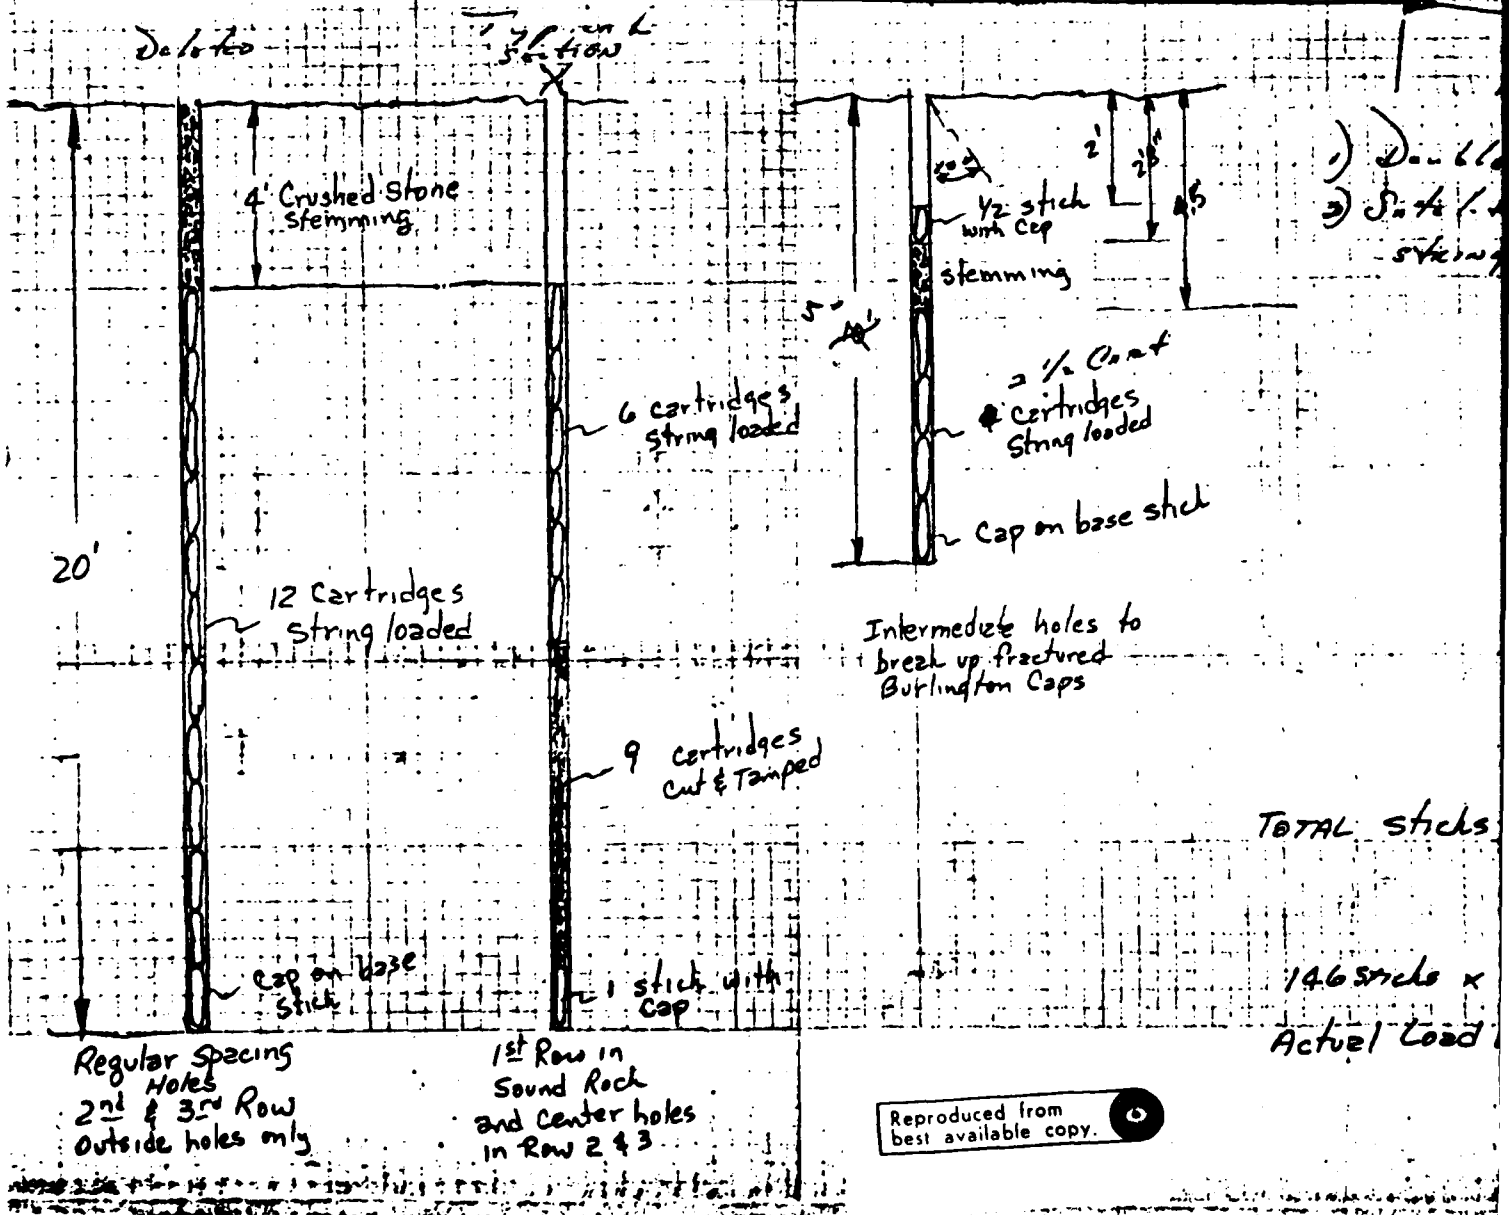 Deleted
Typical
Section
X
4' Crushed Stone
Stemming
20'
12 Cartridges
String loaded
Cap on base
Stick
Regular Spacing
Holes
2nd & 3rd Row
Outside holes only
6 cartridges
String loaded
9 cartridges
Cut & Tamped
1 stick with
Cap
1st Row in
Sound Rock
and center holes
in Row 2 & 3
5'
10'
2'
1/2 stick
with Cap
stemming
2 1/2
cartridges
String loaded
Cap on base stick
Intermediate holes to
break up fractured
Burlington Caps
1)
TOTAL sticks
146 sticks x
Actual Load
Reproduced from
best available copy.